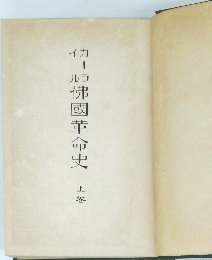 カーライル佛國革命史 上卷